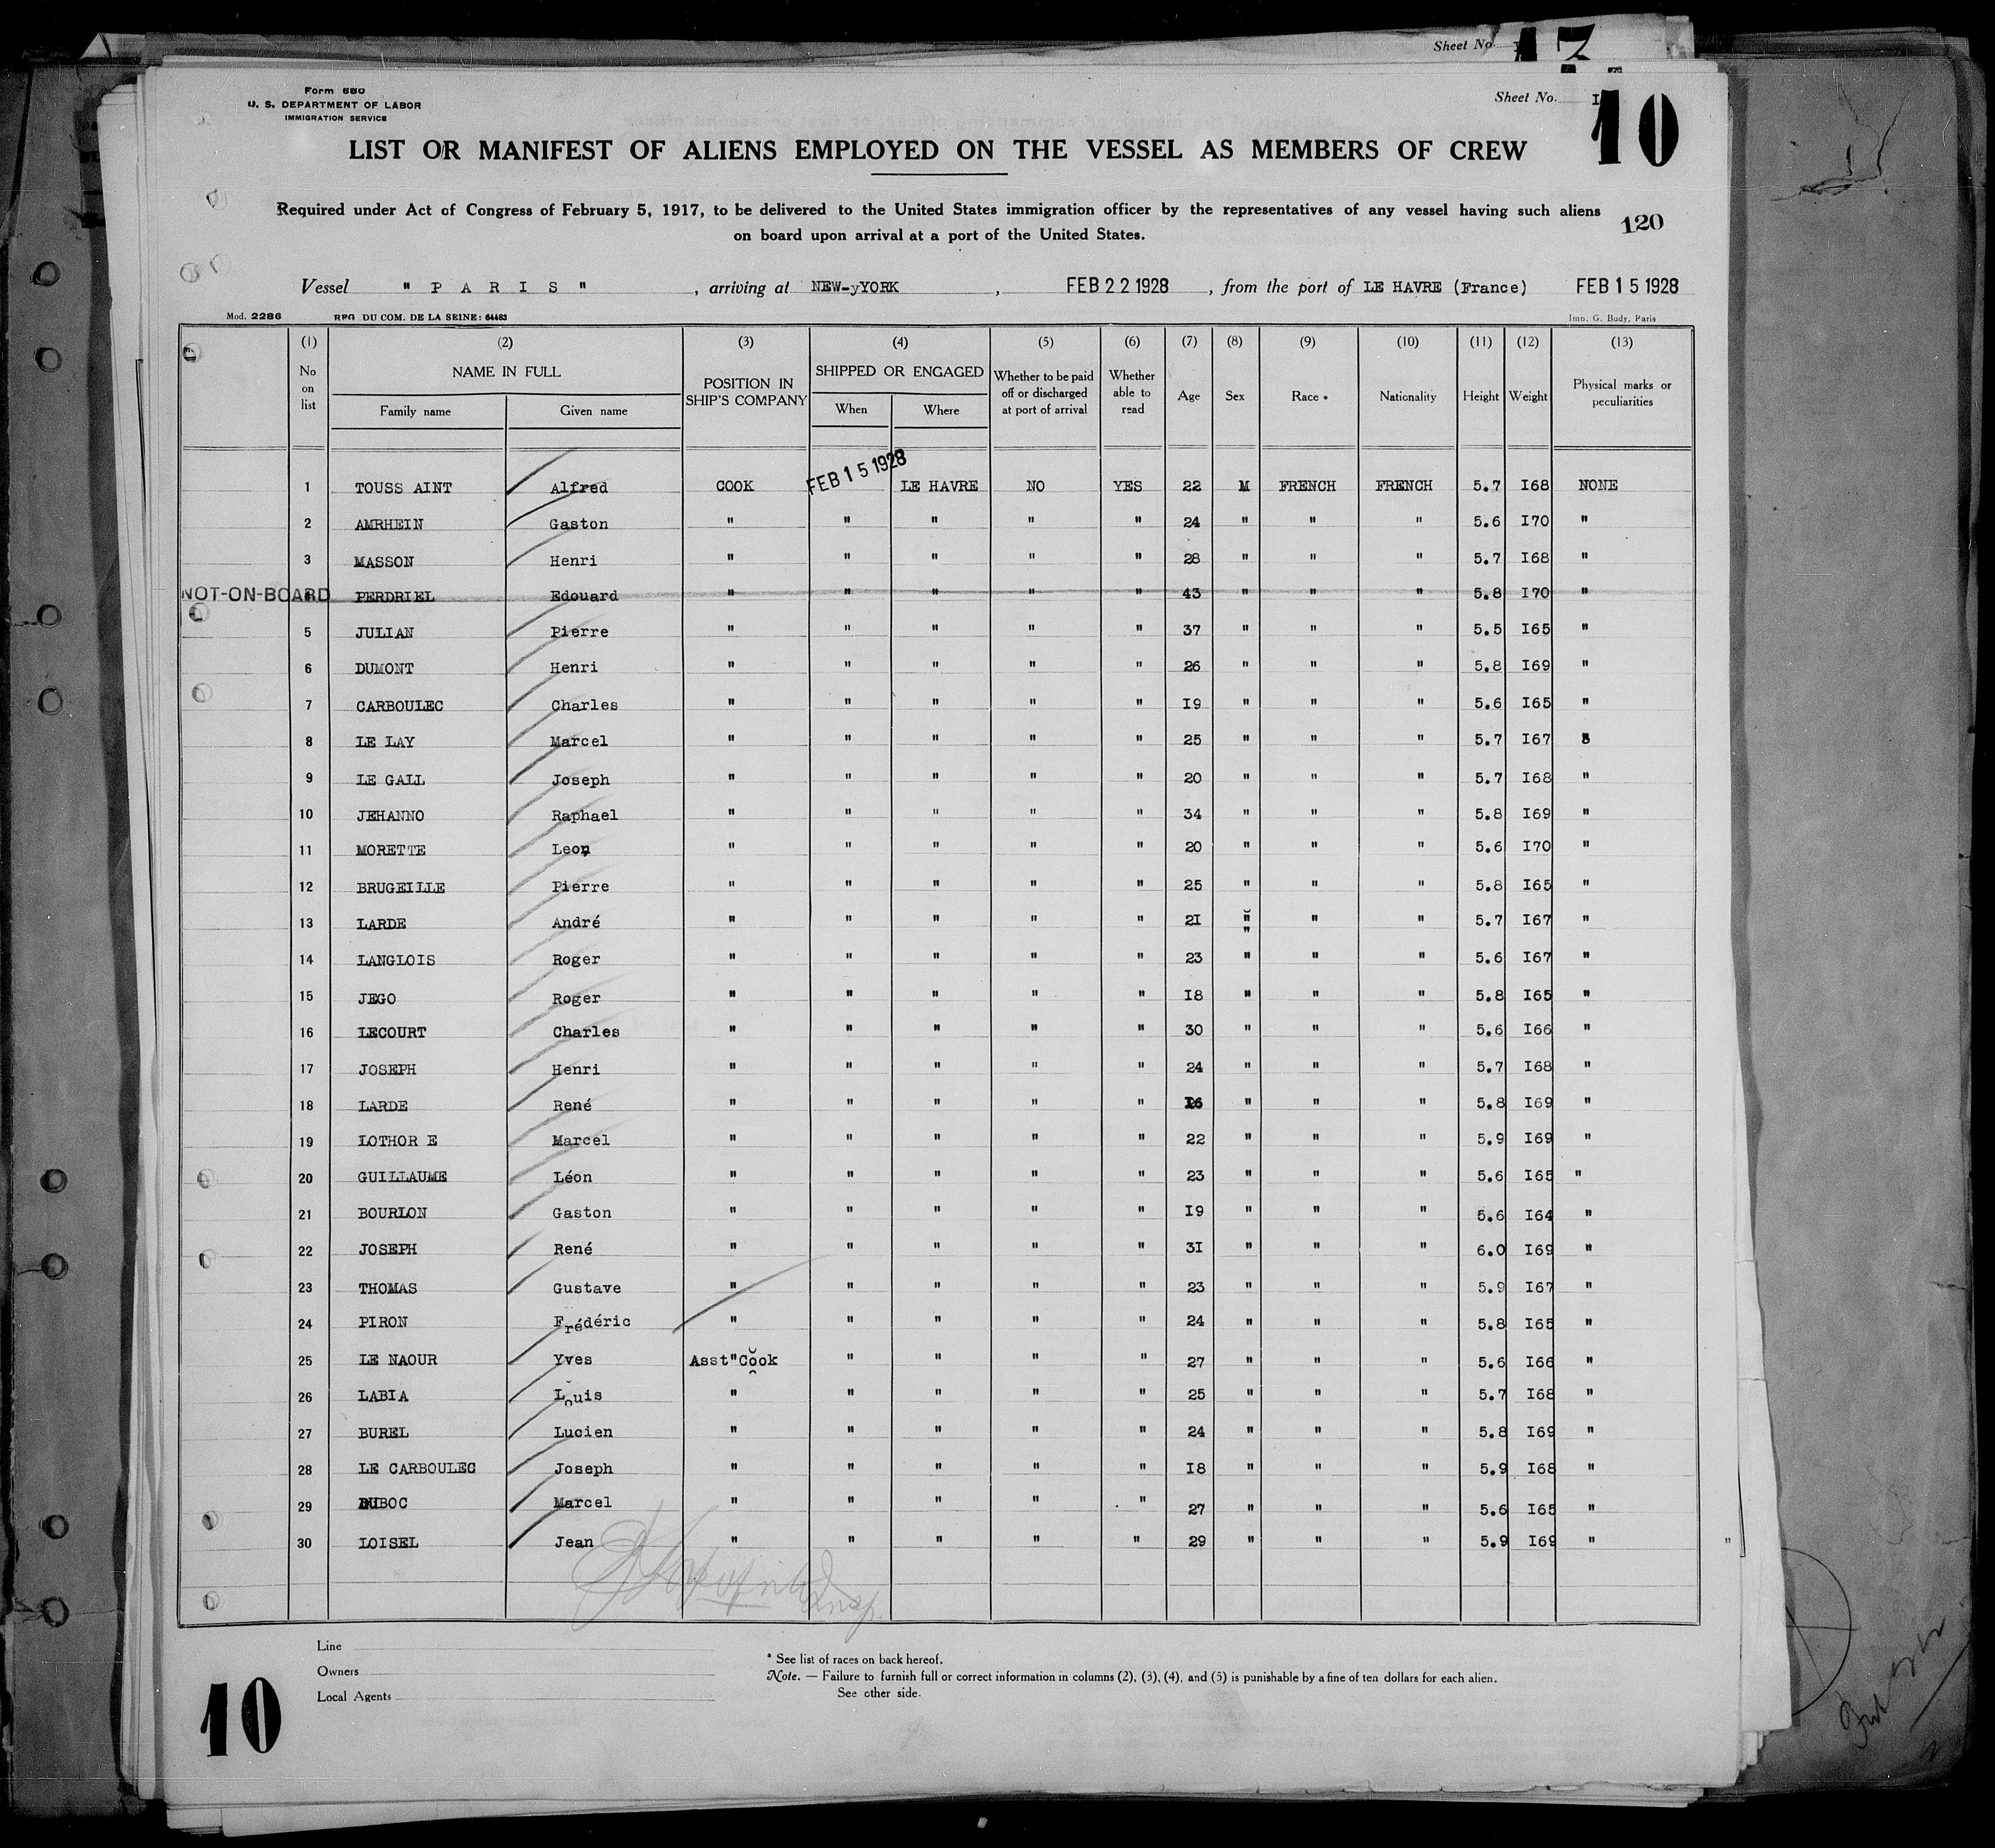 Sheet No
13
Form 680
U. S. DEPARTMENT OF LABOR
IMMIGRATION SERVICE
Sheet No. I
10
LIST OR MANIFEST OF ALIENS EMPLOYED ON THE VESSEL AS MEMBERS OF CREW
Required under Act of Congress of February 5, 1917, to be delivered to the United States immigration officer by the representatives of any vessel having such aliens
on board upon arrival at a port of the United States.
120
Vessel " P A R I S " , arriving at NEW-yYORK , FEB 22 1928 , from the port of LE HAVRE (France) FEB 15 1928
Mod. 2286 RPG DU COM. DE LA SEINE: 64483 Imp. G. Budy, Paris
(1) (2) (3) (4) (5) (6) (7) (8) (9) (10) (11) (12) (13)
No on list NAME IN FULL Family name Given name POSITION IN SHIP'S COMPANY SHIPPED OR ENGAGED When Where Whether to be paid off or discharged at port of arrival Whether able to read Age Sex Race * Nationality Height Weight Physical marks or peculiarities
1 TOUSS AINT Alfred COOK FEB 15 1928 LE HAVRE NO YES 22 M FRENCH FRENCH 5.7 I68 NONE
2 AMRHEIN Gaston " " " " " 24 " " " 5.6 I70 "
3 MASSON Henri " " " " " 28 " " " 5.7 I68 "
NOT-ON-BOARD PERDRIEL Edouard " " " " " 43 " " " 5.8 I70 "
5 JULIAN Pierre " " " " " 37 " " " 5.5 I65 "
6 DUMONT Henri " " " " " 26 " " " 5.8 I69 "
7 CARBOULEC Charles " " " " " I9 " " " 5.6 I65 "
8 LE LAY Marcel " " " " " 25 " " " 5.7 I67
9 LE GALL Joseph " " " " " 20 " " " 5.7 I68 "
10 JEHANNO Raphael " " " " " 34 " " " 5.8 I69 "
11 MORETTE Leon " " " " " 20 " " " 5.6 I70 "
12 BRUGEILLE Pierre " " " " " 25 " " " 5.8 I65 "
13 LARDE André " " " " " 2I " " " 5.7 I67 "
14 LANGLOIS Roger " " " " " 23 " " " 5.6 I67 "
15 JEGO Roger " " " " " I8 " " " 5.8 I65 "
16 LECOURT Charles " " " " " 30 " " " 5.6 I66 "
17 JOSEPH Henri " " " " " 24 " " " 5.7 I68 "
18 LARDE René " " " " " " " " 5.8 I69 "
19 LOTHOR E Marcel " " " " " 22 " " " 5.9 I69 "
20 GUILLAUME Léon " " " " " 23 " " " 5.6 I65 "
21 BOURLON Gaston " " " " " I9 " " " 5.6 I64 "
22 JOSEPH René " " " " " 3I " " " 6.0 I69 "
23 THOMAS Gustave " " " " " 23 " " " 5.9 I67 "
24 PIRON Frédéric " " " " " 24 " " " 5.8 I65 "
25 LE NAOUR Yves Asst"Cook " " " " 27 " " " 5.6 I66 "
26 LABIA Louis " " " " " 25 " " " 5.7 I68 "
27 BUREL Lucien " " " " " 24 " " " 5.8 I69 "
28 LE CARBOULEC Joseph " " " " " I8 " " " 5.9 I68 "
29 DUBOC Marcel " " " " " 27 " " " 5.6 I65 "
30 LOISEL Jean " " " " " 29 " " " 5.9 I69 " "
Insp.
Line
Owners
Local Agents
* See list of races on back hereof.
Note. — Failure to furnish full or correct information in columns (2), (3), (4), and (5) is punishable by a fine of ten dollars for each alien.
See other side.
10